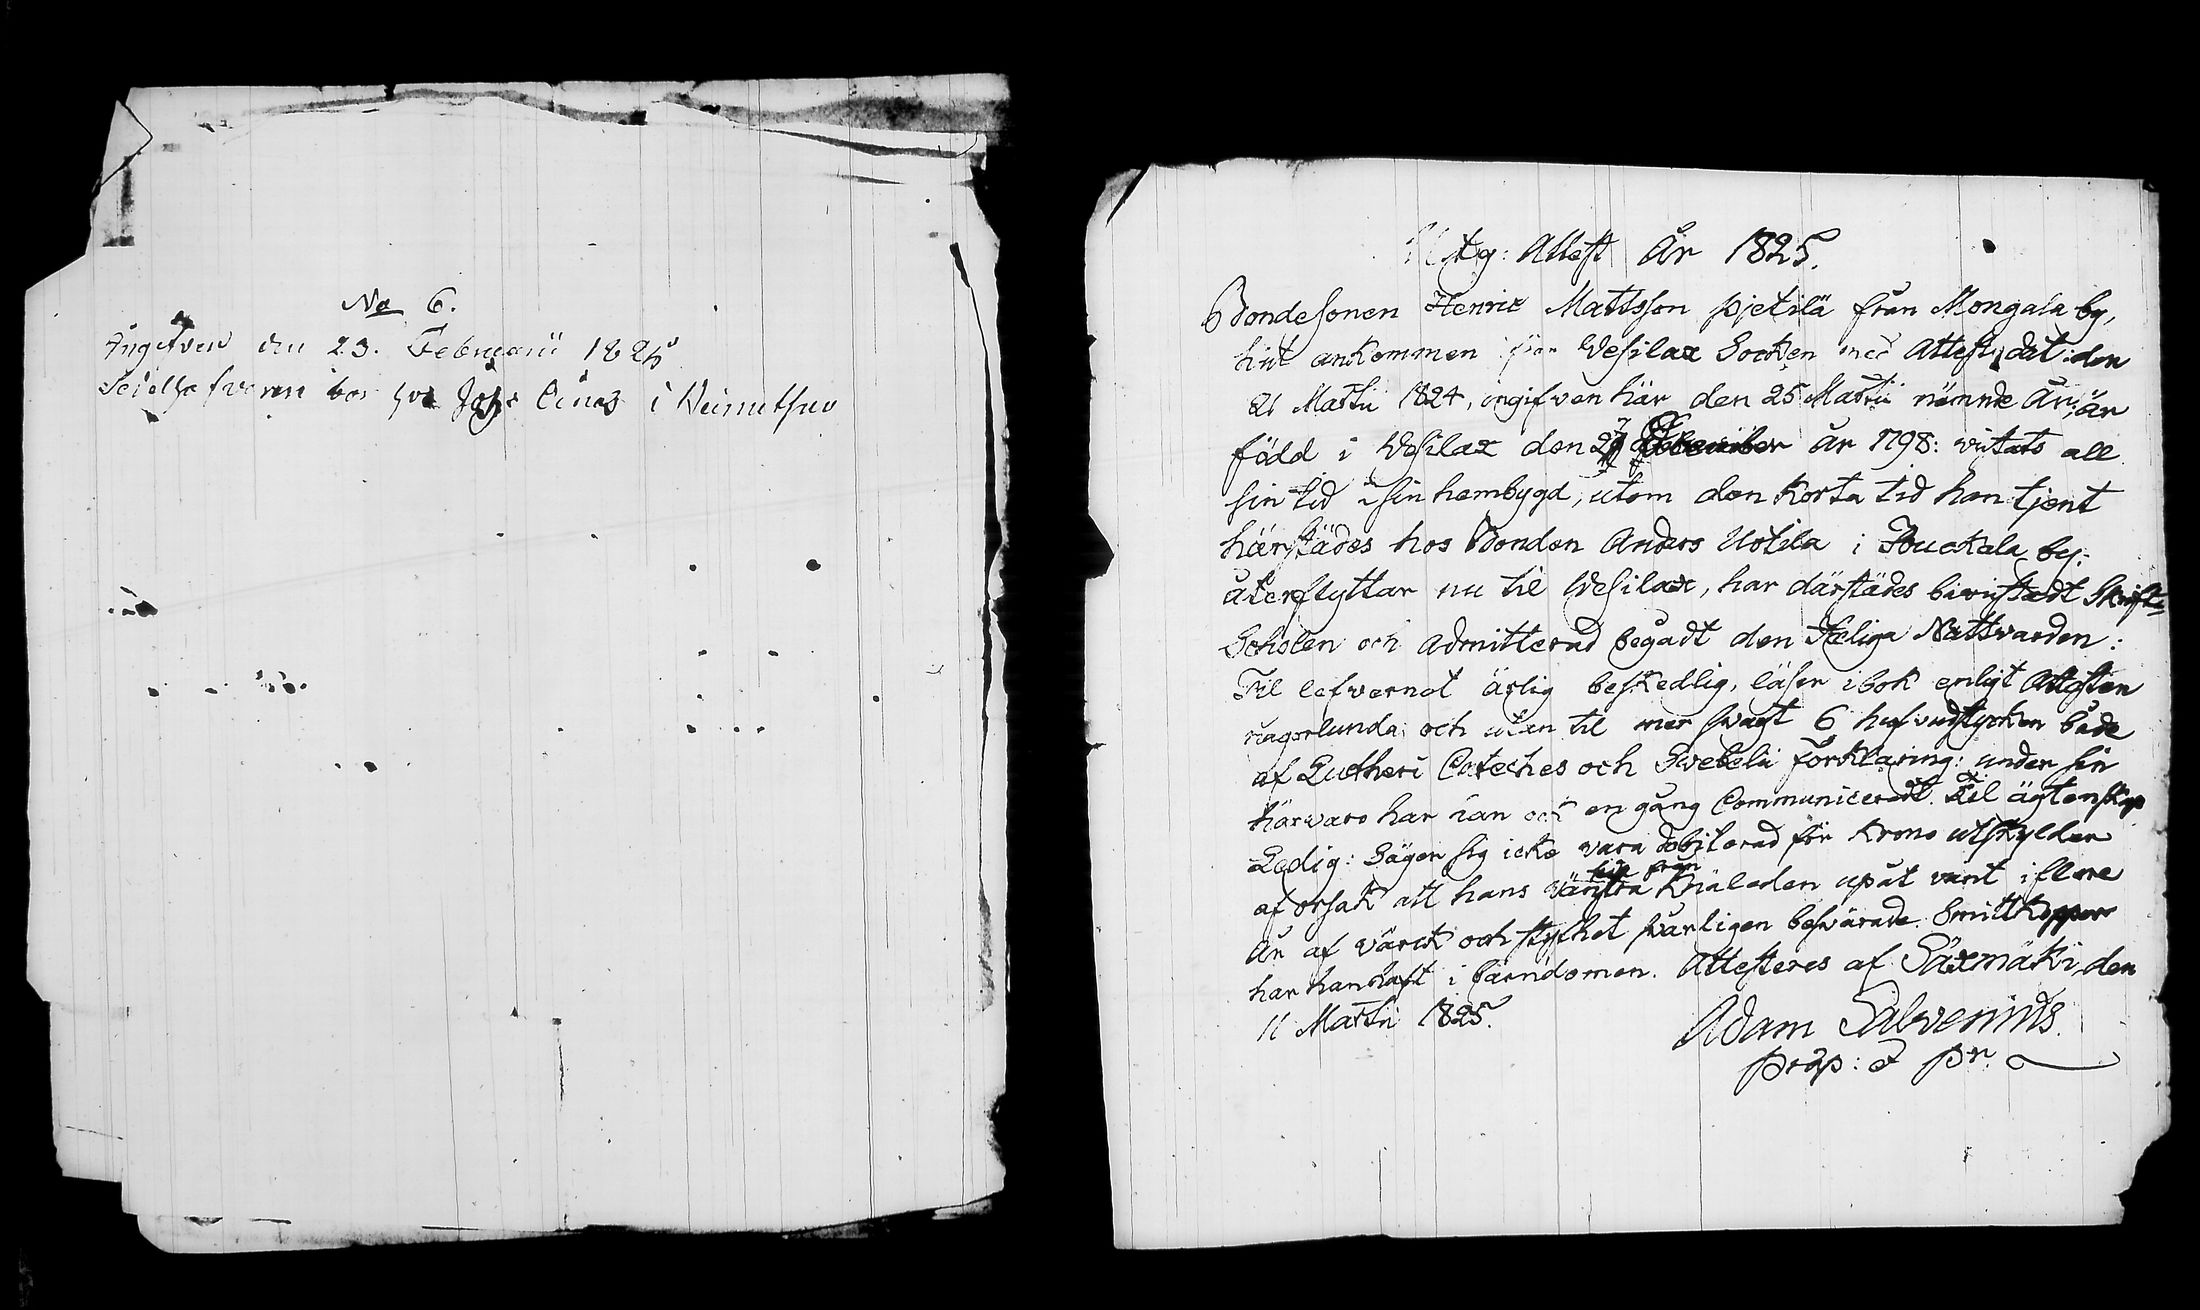 No 6.
Angifven den 23. Februarii 1825
bor hos Johs i
Utg: Attest År 1825.
Bondesonen Henric Mattsson Pjetilä från Mongala by,
hit ankommen från Wesilax Socken med Attest, dat: den
21 Martii 1824, ingifven här den 25 Martii nämnde År, är
född i Wesilax den 27 år 1798: vistats all
sin tid i sin hembygd, utom den korta tid han tjent
härstädes hos Bonden Anders Uotila i Jouckala by:
återflyttar nu til Wesilax, har därstädes bivistadt Skrift-
Scholen och admitterad begådt den Heliga Nattvarden:
Til lefvernet ärlig beskedlig, läser i bok enligt Attesten
någorlunda och utan til mer svagt 6 hufvudstycken både
af Lutheri Cateches och Svebelii förklaring: under sin
härvaro har han ock en gång Communicerat. Til ägtenskap
Ledig: Säger sig icke vara debiterad för Krono utskylder
af orsak att hans vänstra från Knäleden upåt varit i flere
År af värck och styfhet svårligen besvärade. Smittkoppor
har han haft i barndomen. Attesteres af Säxmäki den
11 Martii 1825.
Adam Salvenius
Prap: & Pr.